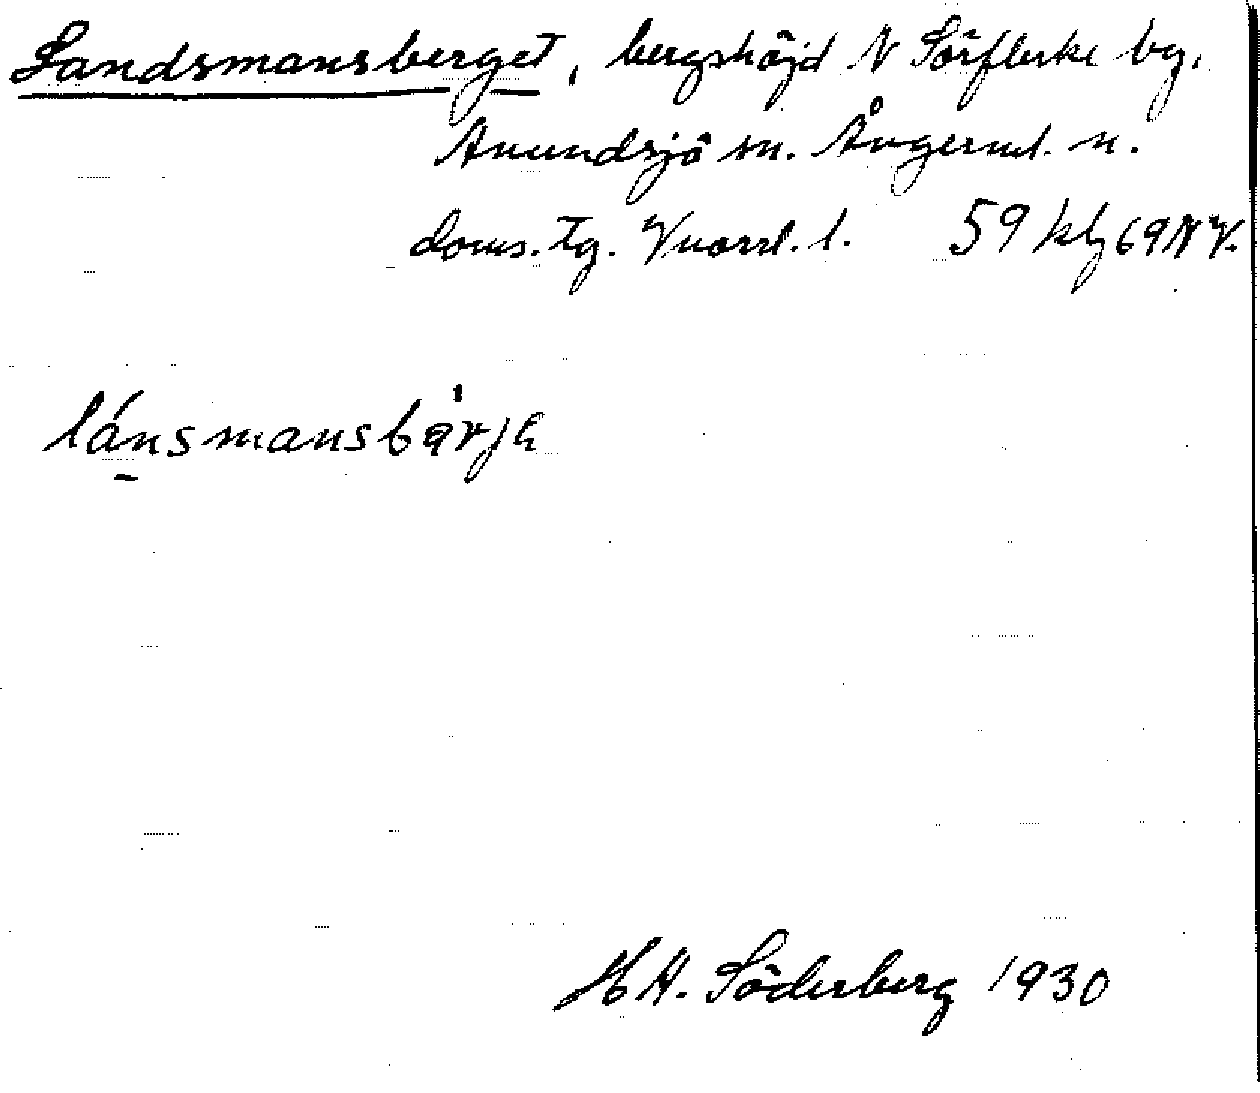 Landsmansberget, bergshöjd N Sörflerke bg.
Anundsjö sn. Ångerml. n.
doms. tg. Vnorrl. l. 59 kbl 69 NV.
lánsmansbàrje
H H. Söderberg 1930